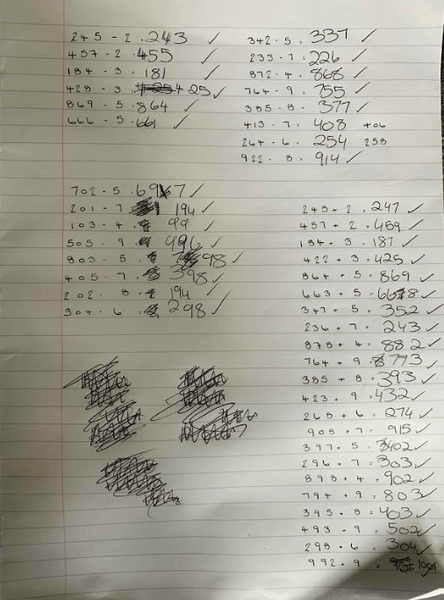 245 - 2 . 243 ✓
457 - 2 . 455 ✓
184 - 3 . 181 ✓
428 - 3 . 425 ✓
869 . 5 . 864 ✓
666 - 5 . 661 ✓
342 - 5 . 337 ✓
233 - 7 . 226 ✓
872 - 4 . 868 ✓
764 - 9 . 755 ✓
385 - 8 . 377 ✓
413 . 7 . 408 406
264 - 6 . 254 258
922 . 8 . 914 ✓
702 - 5 . 697 ✓
201 - 7 194 ✓
103 - 4 . 99 ✓
505 . 9 . 496 ✓
803 - 5 98 ✓
405 . 7 . 398 ✓
202 . 8 - 194 ✓
304 . 6 . 298 ✓
245 + 2 . 247 ✓
457 + 2 . 459 ✓
184 + 3 . 187 ✓
422 + 3 . 425 ✓
864 + 5 . 869 ✓
663 + 5 . 668 ✓
347 + 5 . 352 ✓
236 + 7 . 243 ✓
878 + 4 . 882 ✓
764 + 9 773 ✓
385 + 8 . 393 ✓
423 + 9 . 432 ✓
268 + 6 . 274 ✓
908 + 7 . 915 ✓
397 . 5 . 402 ✓
296 + 7 = 303 ✓
898 + 4 . 902 ✓
794 + 9 . 803 ✓
395 . 8 = 403 ✓
493 + 9 . 502 ✓
298 + 6 . 304 ✓
992 . 9